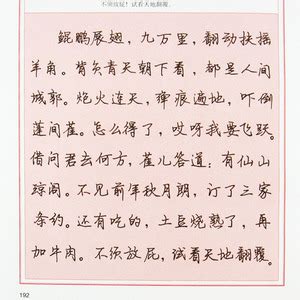 不须放屁!试看天地翻覆。
鲲鹏展翅，九万里，翻动扶摇
羊角。背负青天朝下看，都是人间
城郭。炮火连天，弹痕遍地，吓倒
蓬间雀。怎么得了，哎呀我要飞跃。
借问君去何方，雀儿答道：有仙山
琼阁。不见前年秋月朗，订了三家
条约。还有吃的，土豆烧熟了，再
加牛肉。不须放屁，试看天地翻覆。
192